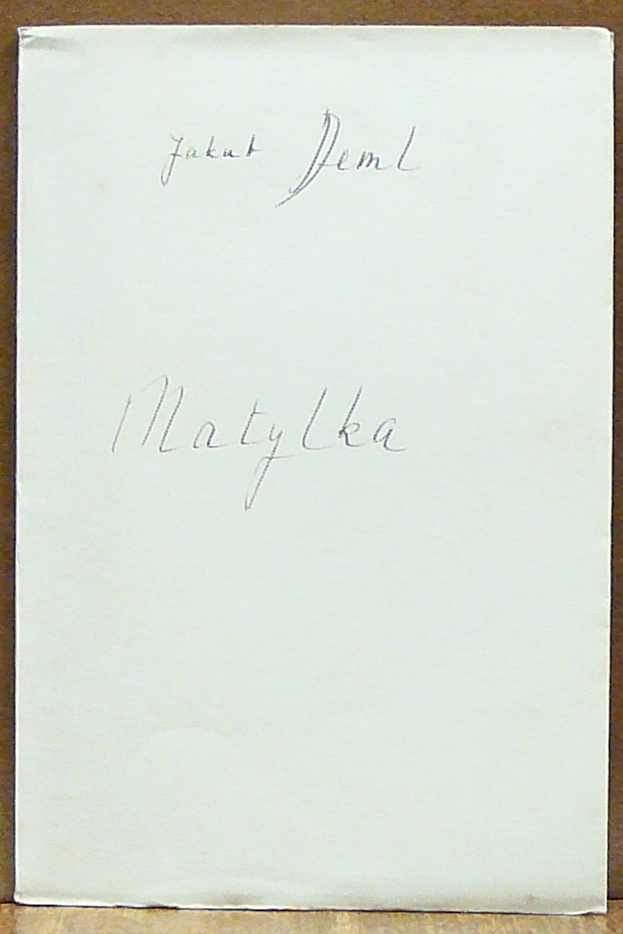 Jakub Deml
Matylka